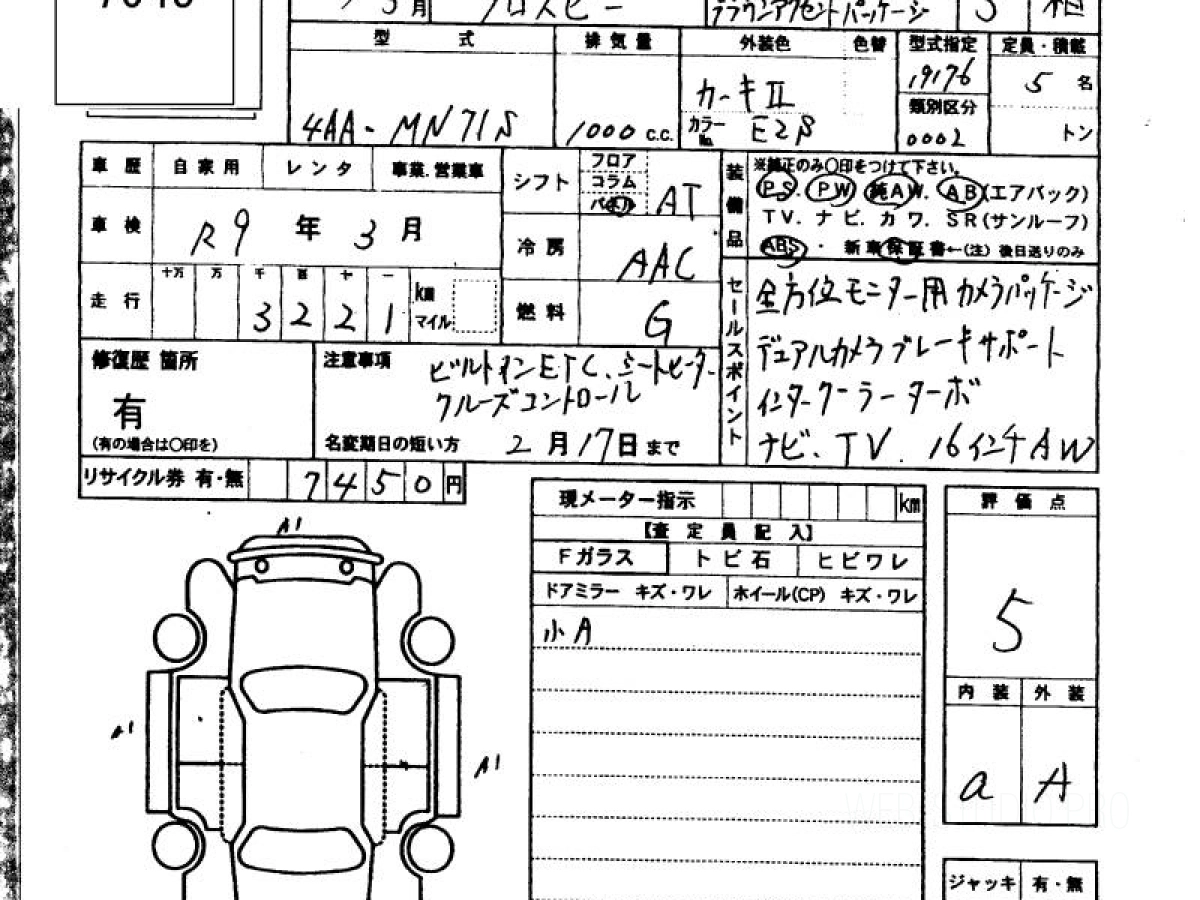 5月
ブラウンアクセントパッケージ 5
型式 排気量 外装色 色替 型式指定 定員・積載
カーキⅡ 19176 5 名
4AA-MN71S 1000 c.c. カラーNo. E2S 類別区分 0002 トン
車歴 自家用 レンタ 事業.営業車
車検 R9 年 3 月
十万 万 千 百 十 一
走行 3 2 2 1 km マイル
シフト フロア コラム パネル AT
冷房 AAC
燃料 G
装備品 ※純正のみ〇印をつけて下さい。
PS. PW 純AW. AB(エアバック)
TV. ナビ. カワ. SR(サンルーフ)
ABS ・ 新車保証書←(注) 後日送りのみ
セールスポイント
全方位モニター用カメラパッケージ
デュアルカメラブレーキサポート
インタークーラーターボ
ナビ、TV. 16インチAW
修復歴 箇所
有
(有の場合は〇印を)
注意事項 ビルトインETC、シートヒーター
クルーズコントロール
名変期日の短い方 2 月 17 日 まで
リサイクル券 有・無 7 4 5 0 円
現メーター指示 km
【査定員記入】
Fガラス トビ石 ヒビワレ
ドアミラー キズ・ワレ ホイール(CP) キズ・ワレ
小A
評価点
5
内装 外装
a A
ジャッキ 有・無
A1
A1
A1